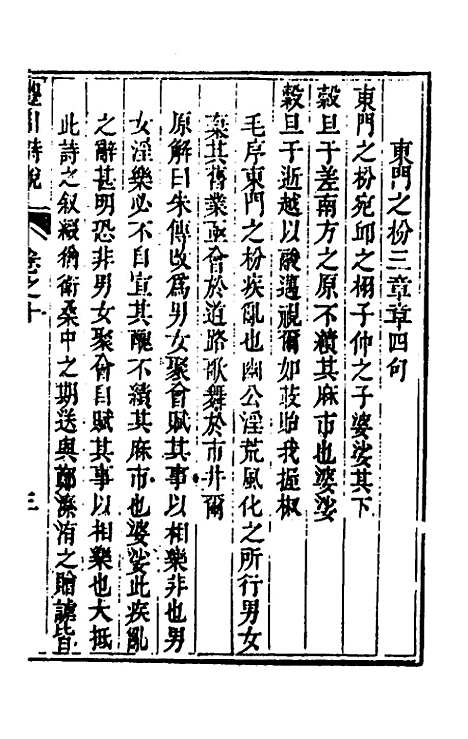 東門之枌三章章四句
東門之枌宛邱之栩子仲之子婆娑其下
穀旦于差南方之原不績其麻市也婆娑
穀旦于逝越以鬷邁視爾如荍貽我握椒
毛序東門之枌疾亂也幽公淫荒風化之所行男女
棄其舊業亟會於道路歌舞於市井爾
原解曰朱傳改爲男女聚會賦其事以相樂非也男
女淫樂必不自宣其醜不績其麻市也婆娑此疾亂
之辭甚明恐非男女聚會自賦其事以相樂也大抵
此詩之叙綴猶衛桑中之期送與鄭溱洧之贈謔皆
詩說
卷之十
三